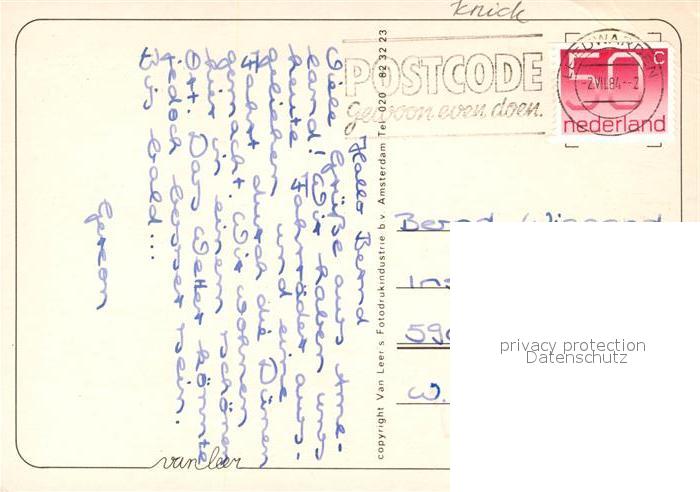 knick
POSTCODE
gewoon even doen.
LEEUWARDEN
-2.VII.84.--2
50 c
nederland
Hallo Bernd
Viele Grüße aus Ame-
land! Wir haben uns
heute Fahrräder aus-
geliehen und eine
Fahrt durch die Dünen
gemacht. Wir wohnen
hier in einem schönen
Ort. Das Wetter könnte
jedoch besser sein.
Bis bald...
copyright Van Leer's Fotodrukindustrie b.v. Amsterdam Tel. 020 - 82 32 23
Bernd
590
W.
privacy protection
Datenschutz
van leer